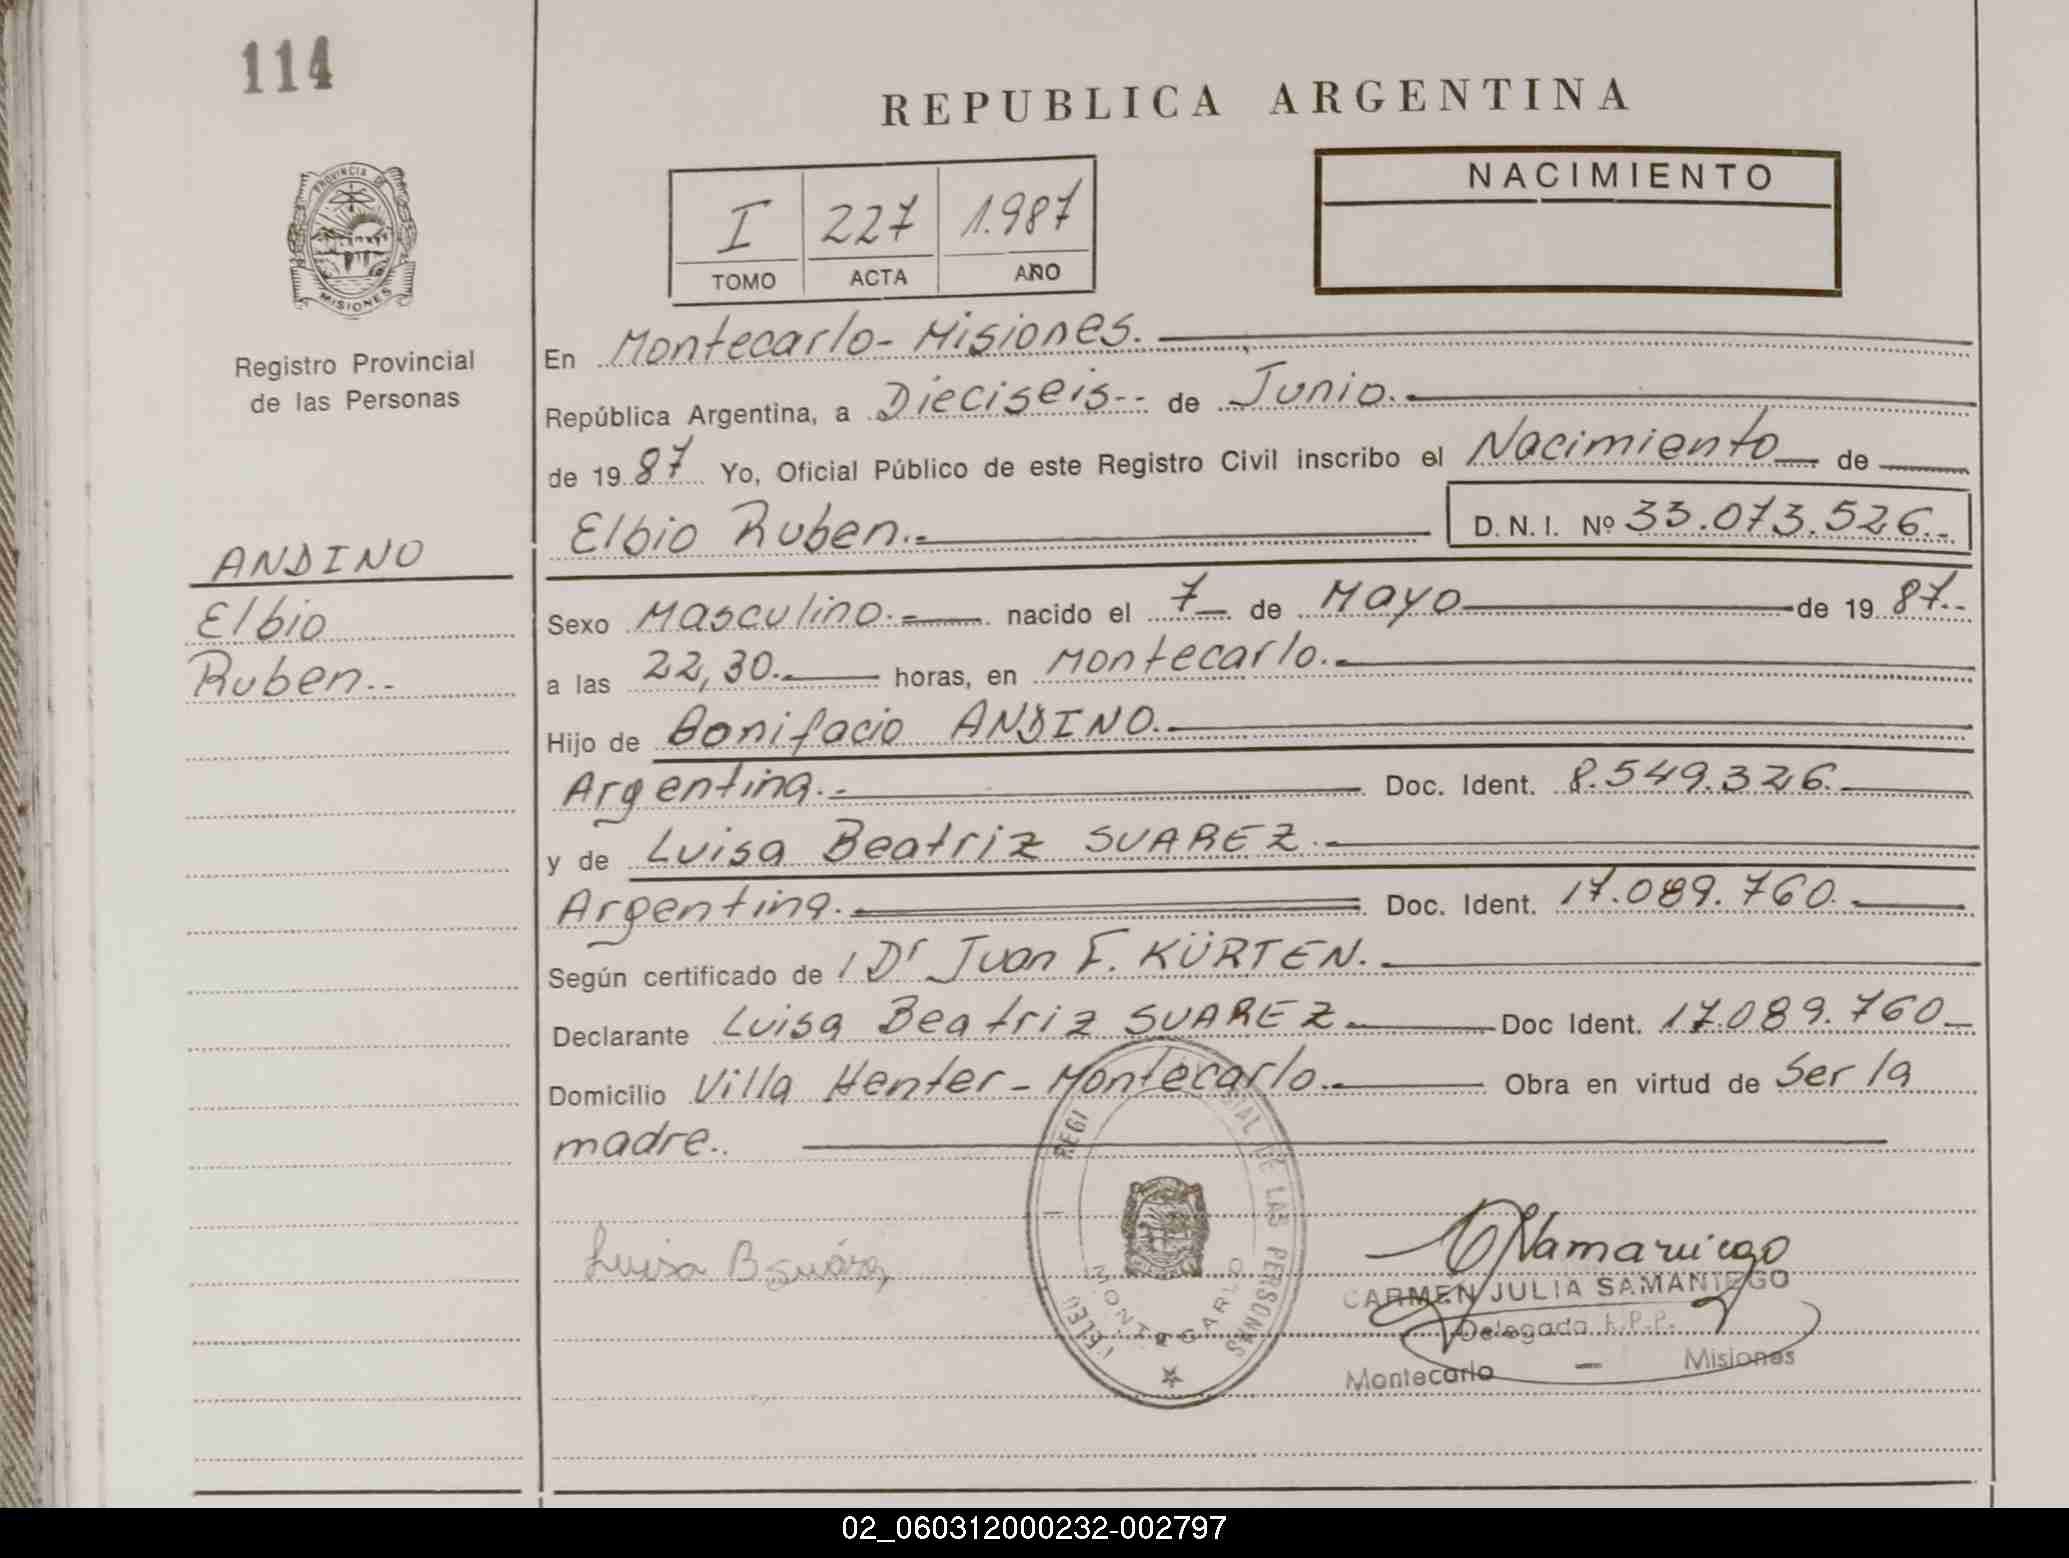 114
REPUBLICA ARGENTINA
NACIMIENTO
I 227 1.987
TOMO ACTA AÑO
PROVINCIA DE
MISIONES
Registro Provincial
de las Personas
ANDINO
Elbio
Ruben..
En Montecarlo- Misiones.
República Argentina, a Dieciseis-- de Junio.
de 19 87 Yo, Oficial Público de este Registro Civil inscribo el Nacimiento de
Elbio Ruben. D. N. I. Nº 33.073.526..
Sexo Masculino. nacido el 7 de Mayo de 19 87..
a las 22,30. horas, en Montecarlo.
Hijo de Bonifacio ANDINO.
Argentina. Doc. Ident. 8.549.326.
y de Luisa Beatriz SUAREZ.
Argentina. Doc. Ident. 17.089.760.
Según certificado de l Dr Juan F. KÜRTEN.
Declarante Luisa Beatriz SUAREZ. Doc Ident. 17.089.760
Domicilio Villa Henter - Montecarlo. Obra en virtud de Ser la
madre..
Luisa B Suárez
REGI DE LAS PERSONAS
MONTECARLO
CARMEN JULIA SAMANIEGO
Delegada R.P.P.
Montecarlo — Misiones
02_060312000232-002797